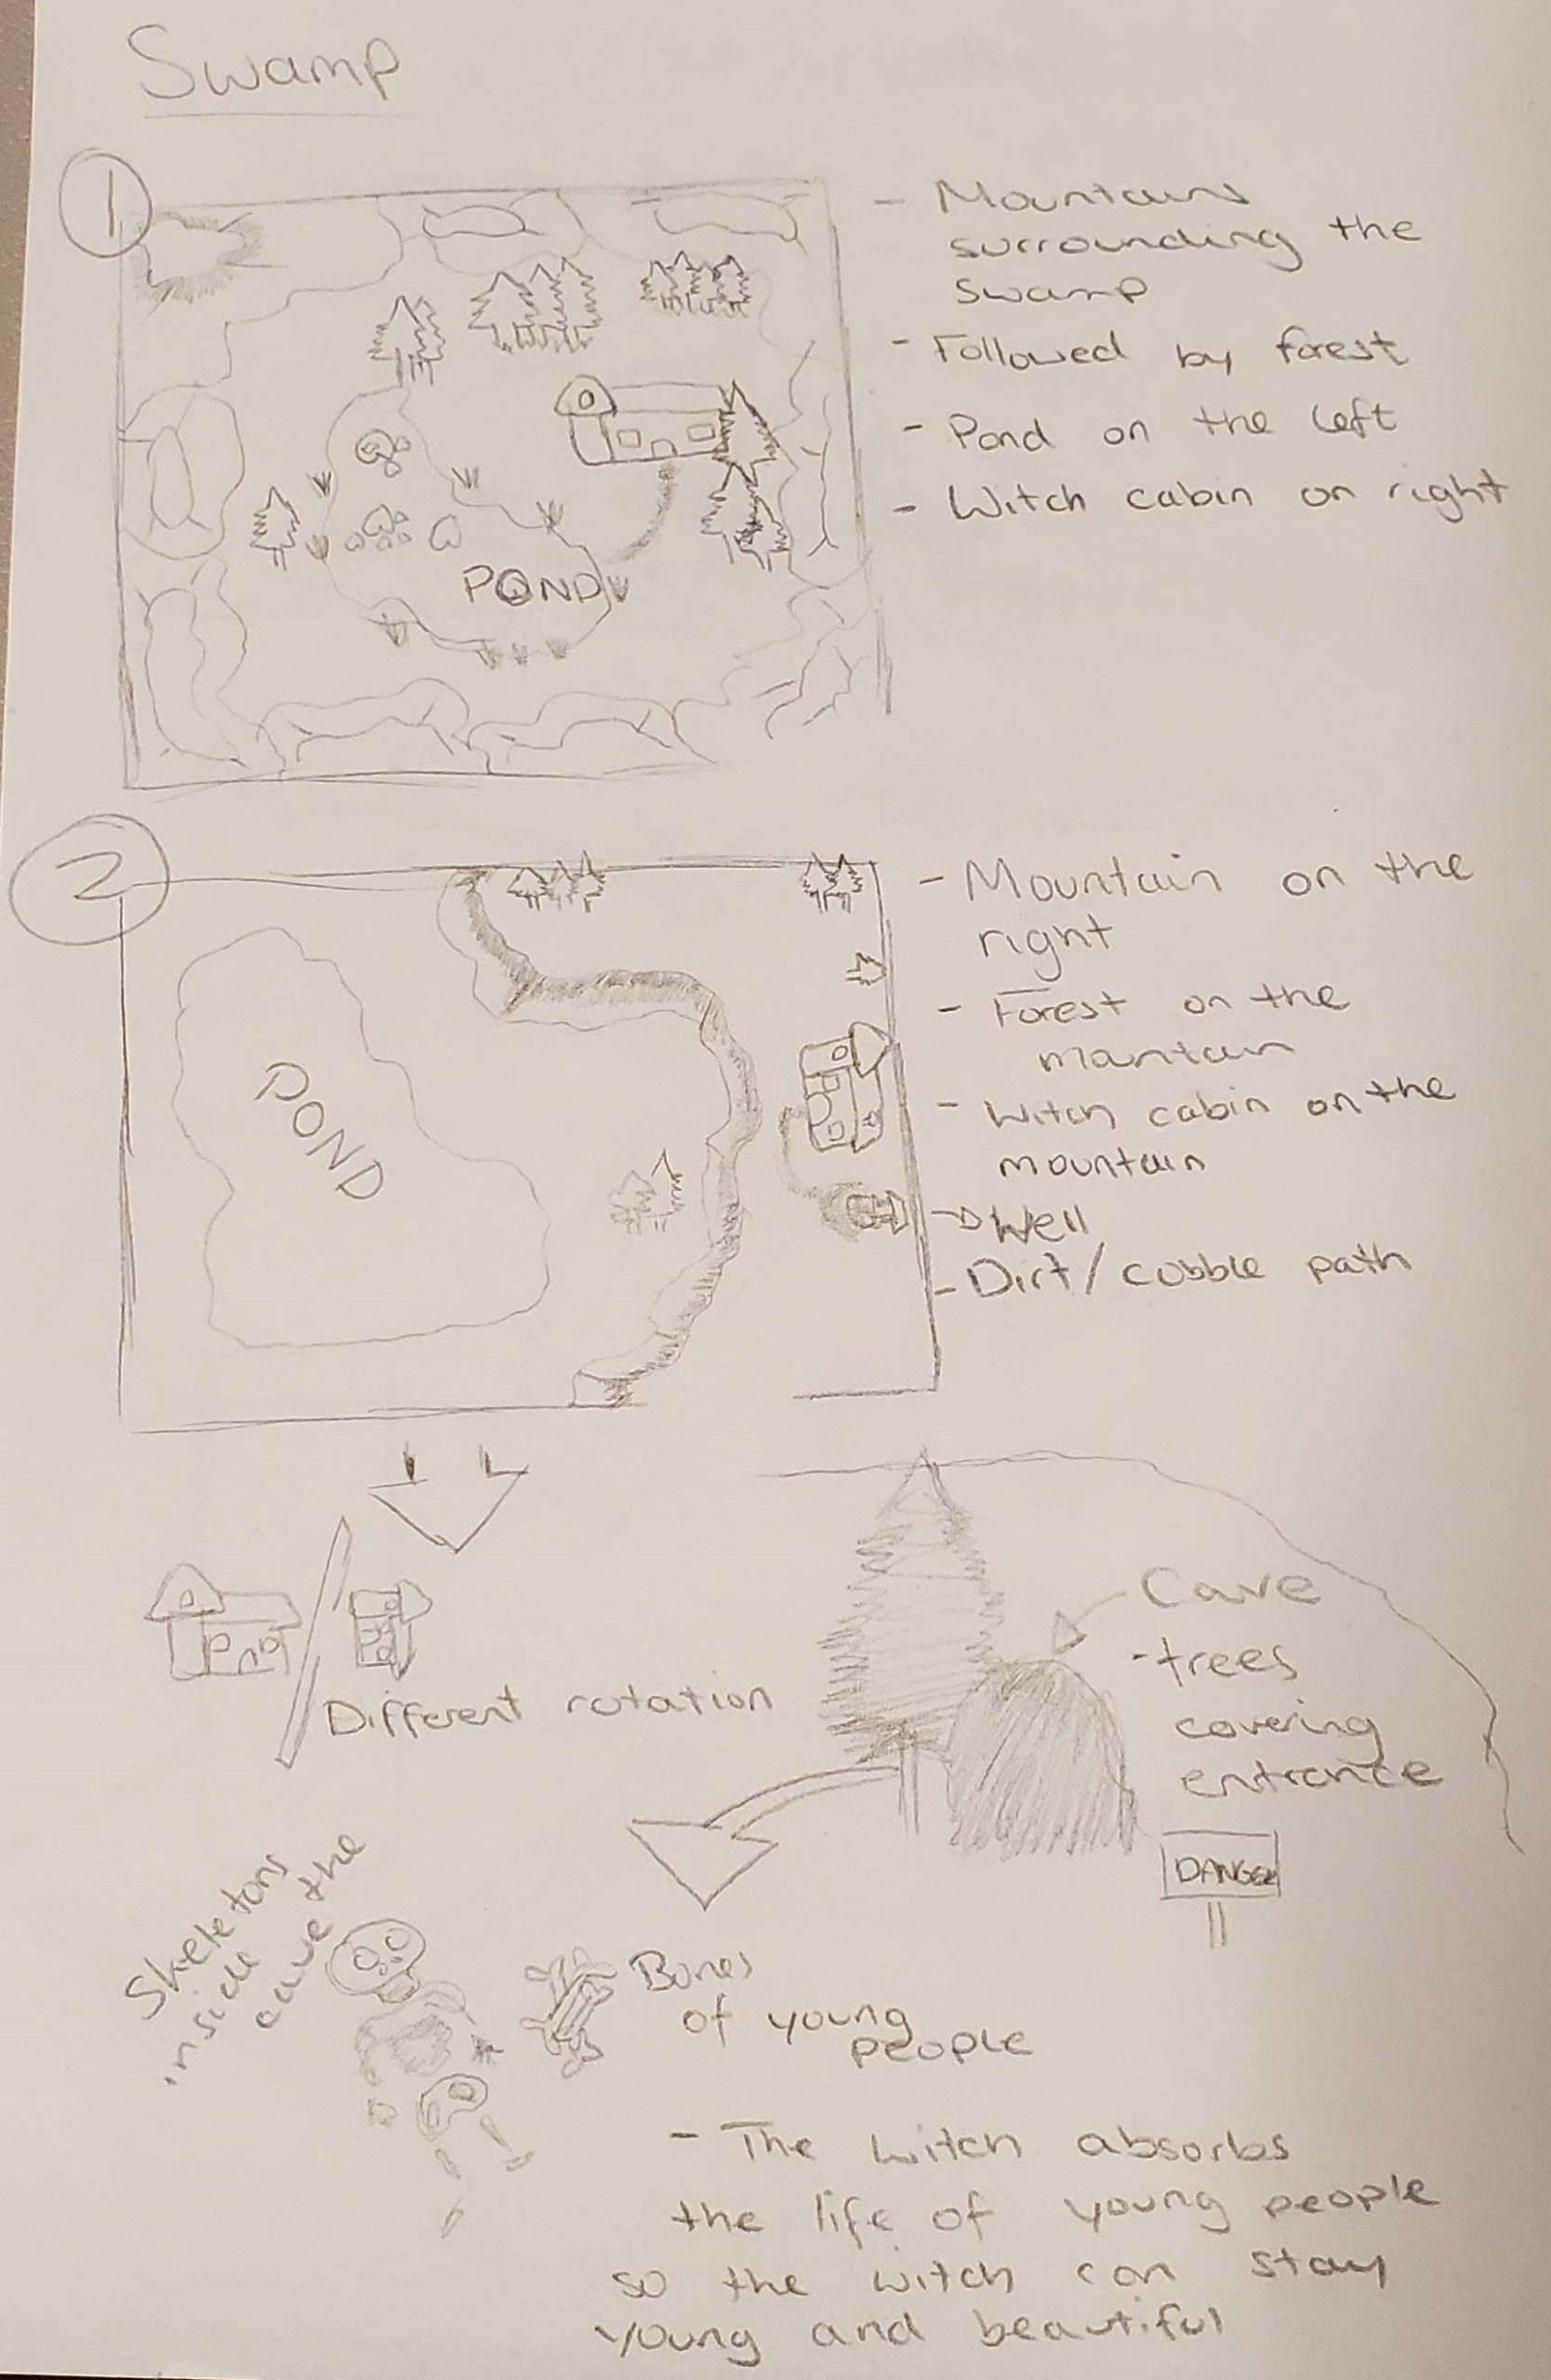 Swamp
1
- Mountains
surrounding the
swamp
- Followed by forest
- Pond on the left
- Witch cabin on right
POND
2
- Mountain on the
right
- Forest on the
mountain
- Witch cabin on the
mountain
→ Well
- Dirt/cobble path
POND
Different rotation
Cave
- trees
covering
entrance
DANGER
Skeletons
inside the
cave
Bones
of young
people
- The witch absorbs
the life of young people
so the witch can stay
young and beautiful